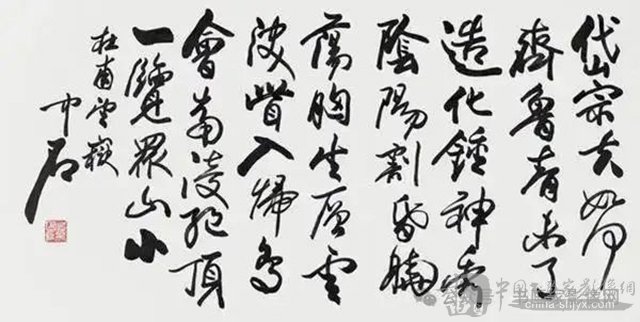 岱宗夫如何
齊魯青未了
造化鍾神秀
陰陽割昏曉
蕩胸生層雲
決眥入歸鳥
會當凌絕頂
一覽眾山小
杜甫望嶽
中石
china-shjyx.com